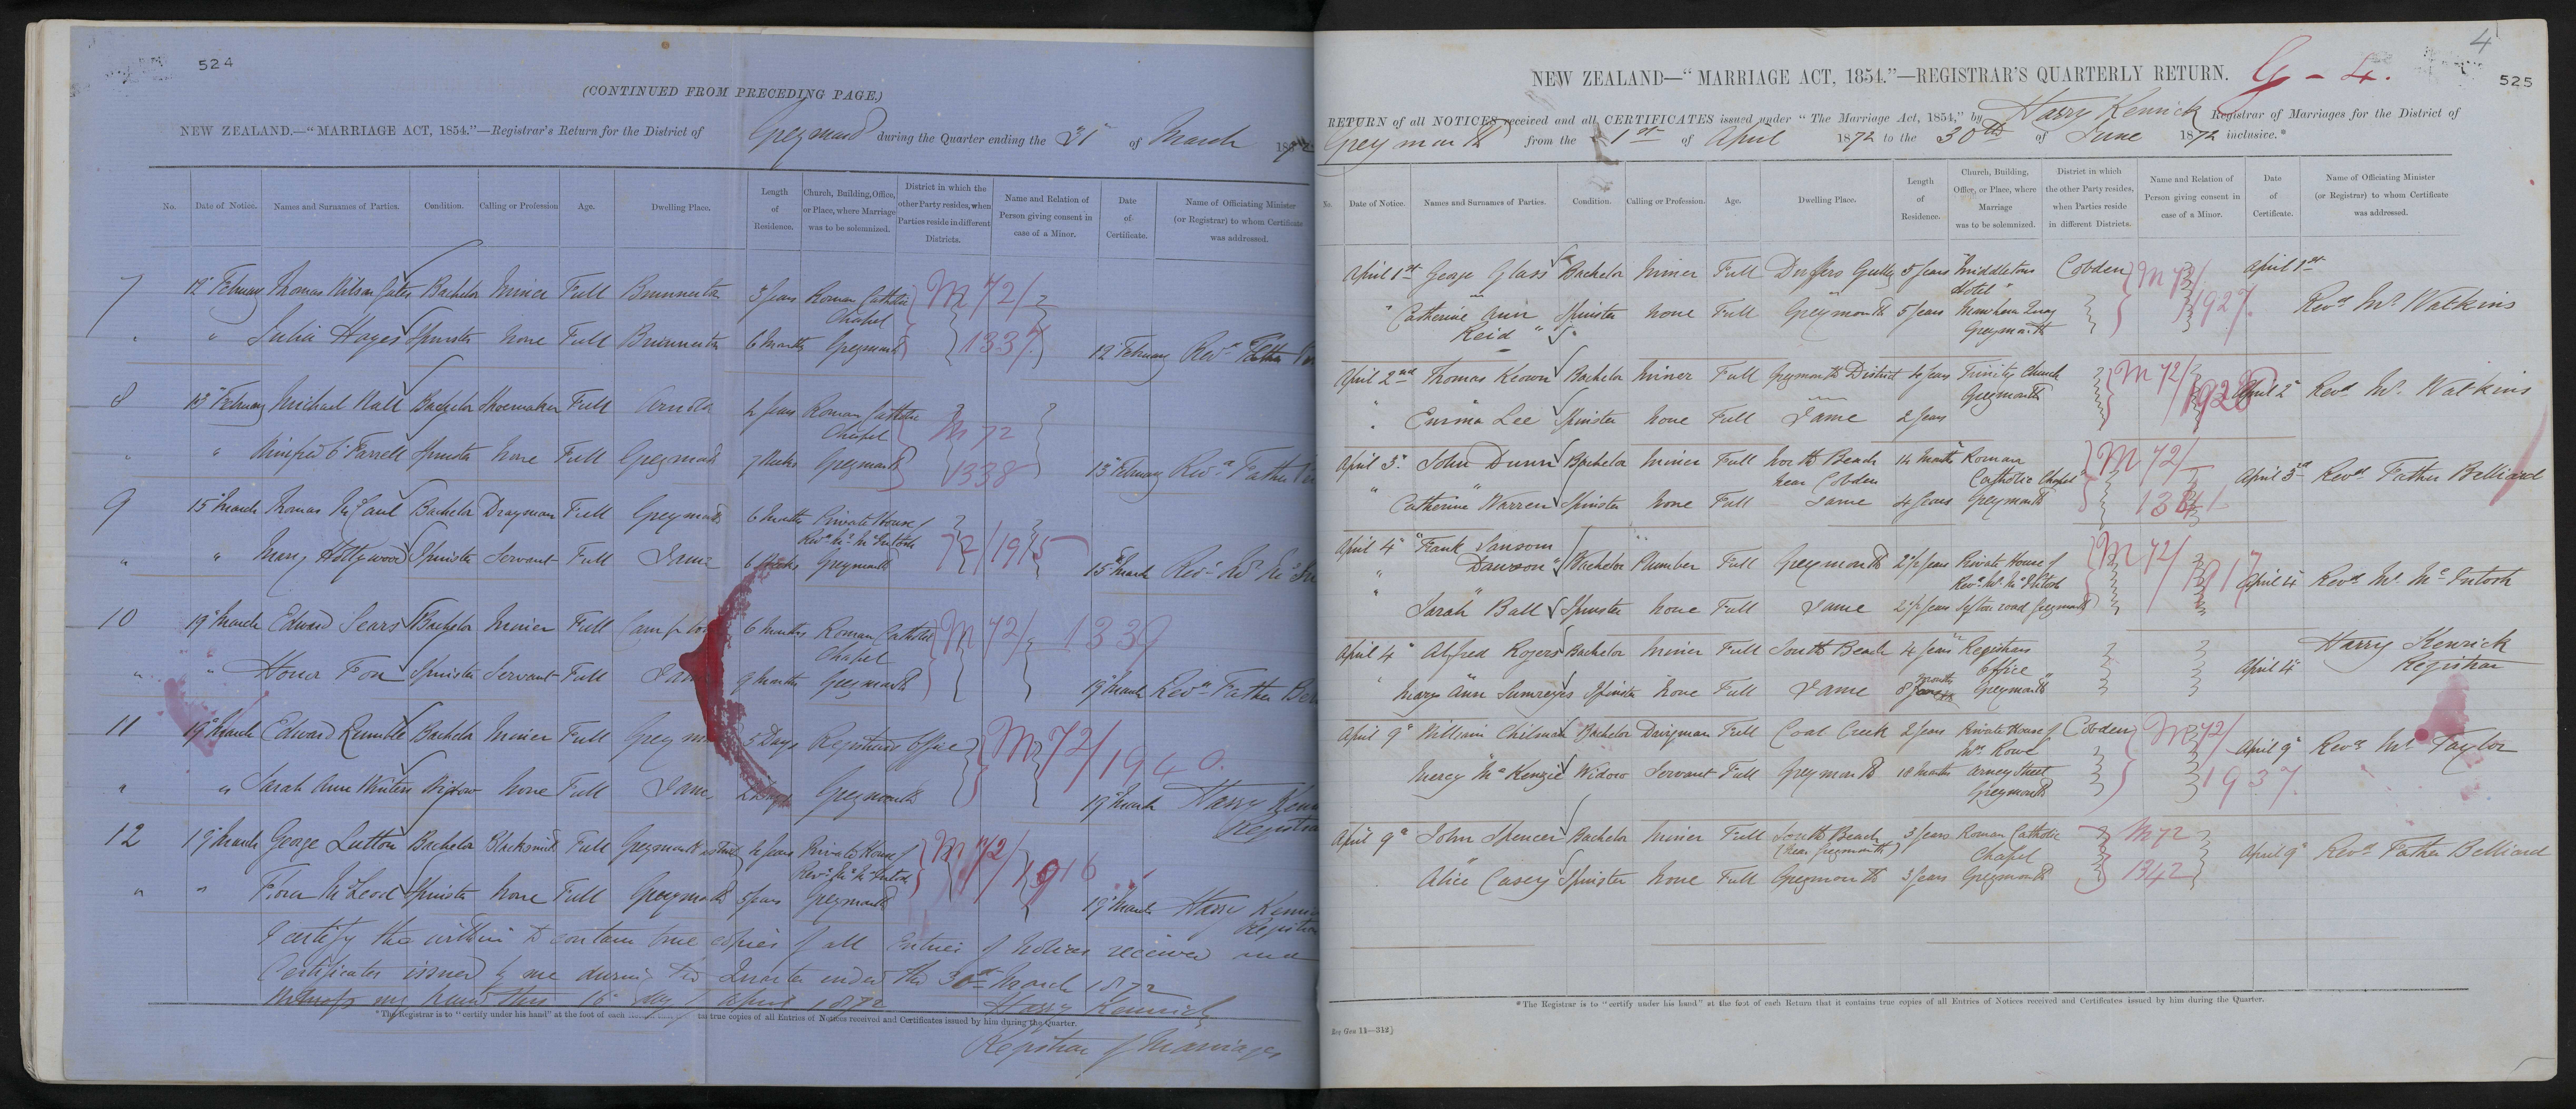 524
(CONTINUED FROM PRECEDING PAGE.)
NEW ZEALAND.—"MARRIAGE ACT, 1854."—Registrar's Return for the District of Greymouth during the Quarter ending the 31st of March 1872
No. Date of Notice. Names and Surnames of Parties. Condition. Calling or Profession Age. Dwelling Place. Length of Residence. Church, Building, Office, or Place, where Marriage was to be solemnized. District in which the other Party resides, when Parties reside in different Districts. Name and Relation of Person giving consent in case of a Minor. Date of Certificate. Name of Officiating Minister (or Registrar) to whom Certificate was addressed.
7 12" February Thomas Wilson Bachelor Miner Full Brunnerton 3 years Roman Catholic Chapel M 72/
" " Julia Hayes Spinster None Full Brunnerton 6 Months Greymouth 1337 12 February Revd Father
8 13" February Michael Bachelor Shoemaker Full Arnold Roman Catholic Chapel M 72
" " Winifred O'Farrell Spinster None Full Greymouth 7 Weeks Greymouth 1338 13" February Revd Father
9 15" March Thomas McCaul Bachelor Drayman Full Greymouth 6 Months Private House of Revd Mr McIntosh
" " Mary Hollywood Spinster Servant Full Same Greymouth 72/1915 15" March Revd Mr
10 19" March Edward Sears Bachelor Miner Full 6 Months Roman Catholic Chapel M 72/1339
" " Honor Fox Spinster Servant Full 9 Months Greymouth 19" March Revd Father
11 19" March Edward Rumble Bachelor Miner Full 3 Days Registrars Office M 72/1940.
" " Sarah Ann Winters Widow None Full Same Greymouth 19" March Harry
12 19" March George Lutton Bachelor Blacksmith Full Greymouth Private House of Revd Mr McIntosh M 72/1916
" " Flora McLeod Spinster None Full Greymouth 5 years Greymouth 19" March Harry
I certify the within to contain true copies of all Entries of Notices received and
Certificates issued by me during the Quarter ended the 30th March 1872
Witness my hand this 16" day of April 1872 Harry Kenrick
Registrar of Marriages
*The Registrar is to "certify under his hand" at the foot of each true copies of all Entries of Notices received and Certificates issued by him during the Quarter.
4
525
NEW ZEALAND—"MARRIAGE ACT, 1854."—REGISTRAR'S QUARTERLY RETURN. G - 4.
RETURN of all NOTICES received and all CERTIFICATES issued under "The Marriage Act, 1854," by Harry Kenrick Registrar of Marriages for the District of
Greymouth from the 1st of April 1872 to the 30th of June 1872 inclusive.*
No. Date of Notice. Names and Surnames of Parties. Condition. Calling or Profession. Age. Dwelling Place. Length of Residence. Church, Building, Office, or Place, where Marriage was to be solemnized. District in which the other Party resides, when Parties reside in different Districts. Name and Relation of Person giving consent in case of a Minor. Date of Certificate. Name of Officiating Minister (or Registrar) to whom Certificate was addressed.
April 1st George Glass Bachelor Miner Full Duffers Gully 5 years "Middletons Hotel" Cobden M 72/ April 1st
" Catherine Ann Reid Spinster None Full Greymouth 5 years Mawhera Quay Greymouth 1927. Revd Mr Watkins
April 2nd Thomas Keown Bachelor Miner Full Greymouth District 4 years Trinity Church Greymouth M 72/1928 April 2" Revd Mr. Watkins
" Emma Lee Spinster None Full Same 2 years
April 3" John Dunn Bachelor Miner Full North Beach near Cobden 14 Months Roman Catholic Chapel M 72/ April 3rd Revd Father Belliard
" Catherine Warren Spinster None Full Same 4 years Greymouth 1341
April 4" Frank Sansom Dawson Bachelor Plumber Full Greymouth 2½ years Private House of Revd Mr McIntosh M 72/1917 April 4" Revd Mr McIntosh
" Sarah Ball Spinster None Full Same 2½ years Sefton road Greymouth
April 4" Alfred Rogers Bachelor Miner Full South Beach 4 years Registrars Office April 4" Harry Kenrick Registrar
" Mary Ann Spinster None Full Same 8 months Greymouth
April 9" William Chilman Bachelor Dairyman Full Coal Creek 2 years Private House of Mrs Rowe Cobden M 72/ April 9" Revd Mr Taylor
Mercy McKenzie Widow Servant Full Greymouth 18 Months Arney Street Greymouth 1937.
April 9" John Spencer Bachelor Miner Full South Beach (near Greymouth) 3 years Roman Catholic Chapel M 72 April 9" Revd Father Belliard
Alice Casey Spinster None Full Greymouth 3 years Greymouth 1342
*The Registrar is to "certify under his hand" at the foot of each Return that it contains true copies of all Entries of Notices received and Certificates issued by him during the Quarter.
Reg Gen 11—312}